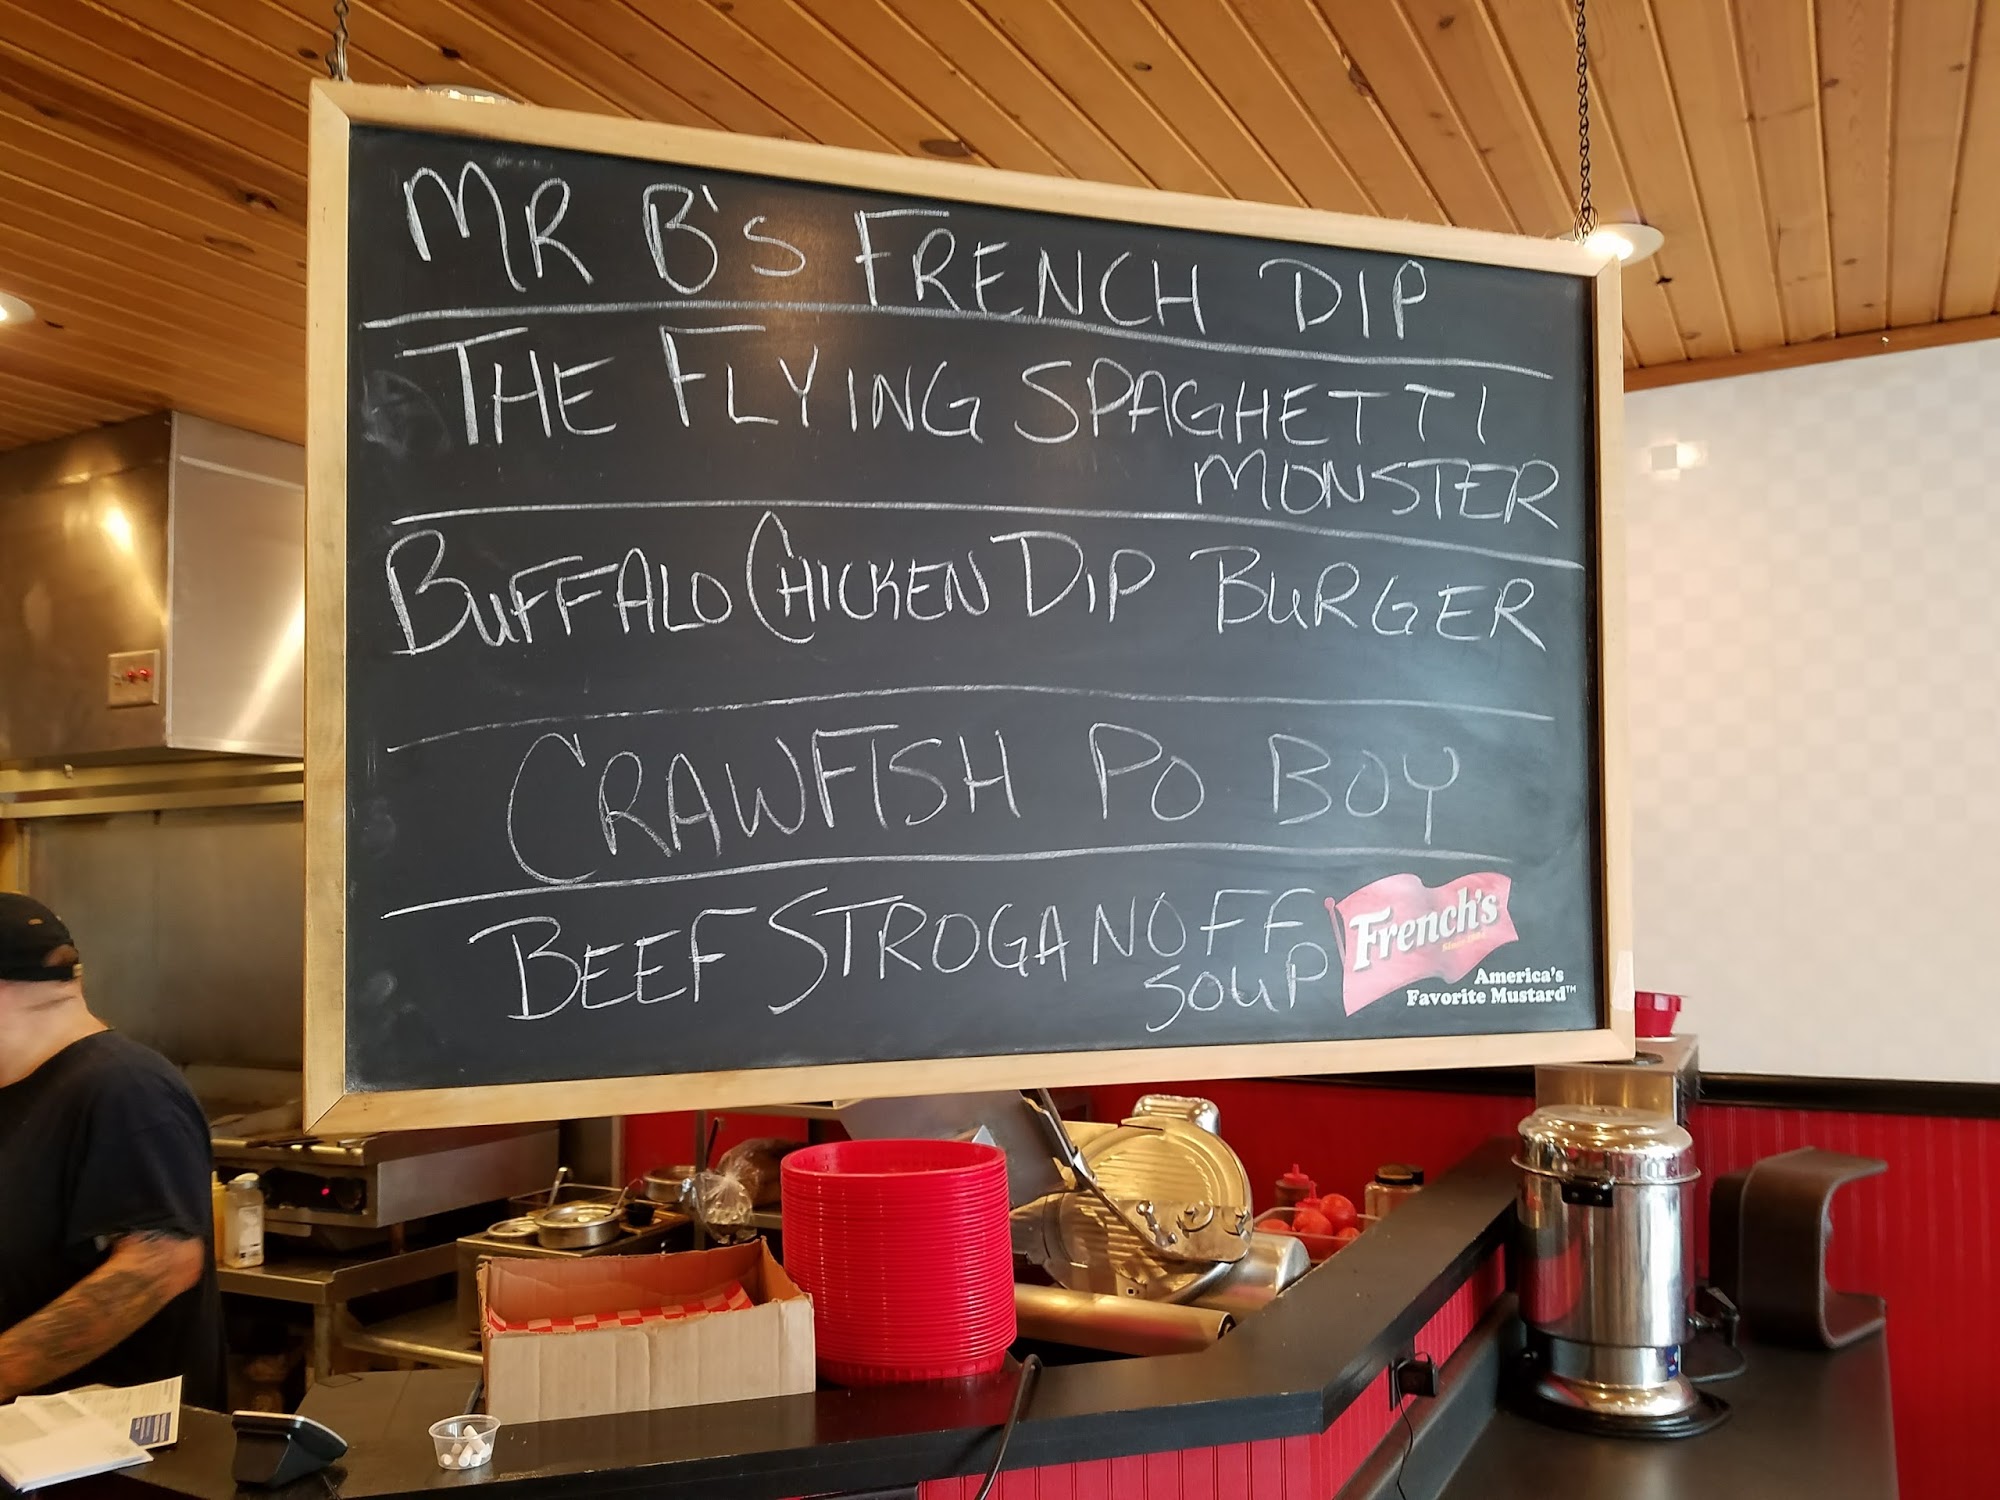 MR B's FRENCH DIP
THE FLYING SPAGHETTI
MONSTER
BUFFALO CHICKEN DIP BURGER
CRAWFISH PO BOY
BEEF STROGANOFF
SOUP
French's
Since 1904
America's
Favorite Mustard™